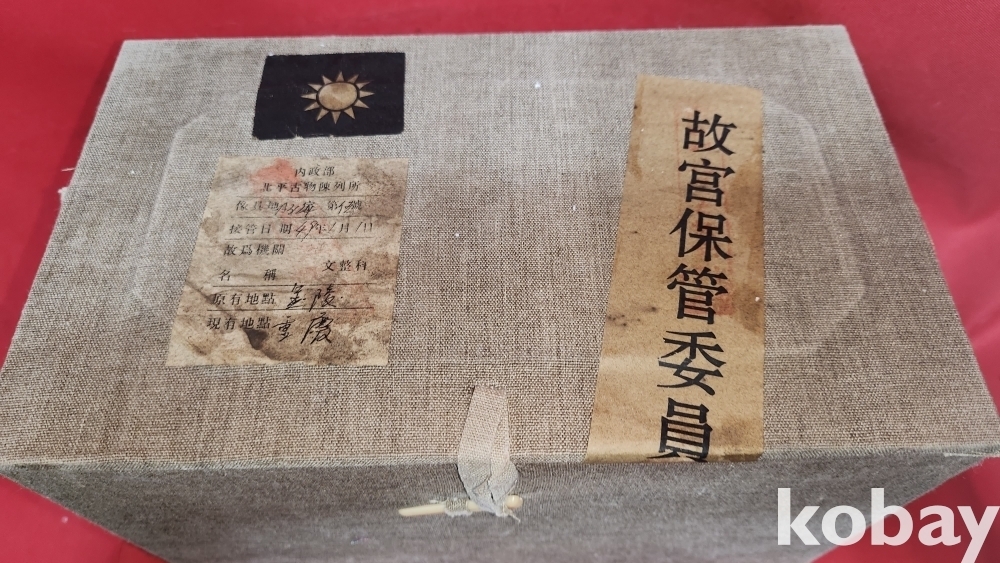 內政部
北平古物陳列所
保管地點 庫 第 號
接管日期 年 月 日
敵偽機關
名稱 文整科
原有地點 金陵
現有地點 重慶
故宮保管委員
kobay